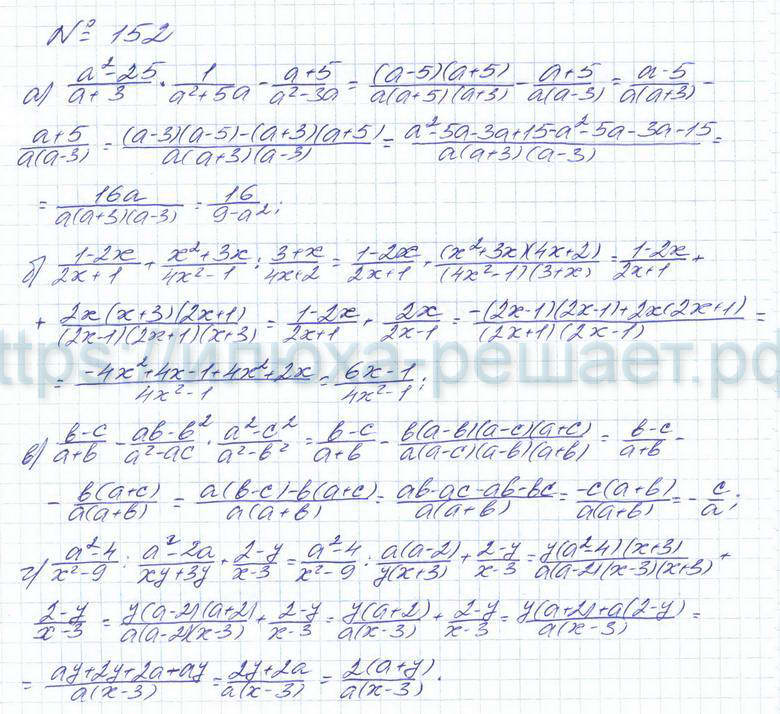 № 152
а) (a²-25)/(a+3) · 1/(a²+5a) - (a+5)/(a²-3a) = ((a-5)(a+5))/(a(a+5)(a+3)) - (a+5)/(a(a-3)) = (a-5)/(a(a+3)) -
(a+5)/(a(a-3)) = ((a-3)(a-5)-(a+3)(a+5))/(a(a+3)(a-3)) = (a²-5a-3a+15-a²-5a-3a-15)/(a(a+3)(a-3)) =
= 16a/(a(a+3)(a-3)) = 16/(9-a²);
б) (1-2x)/(2x+1) + (x²+3x)/(4x²-1) : (3+x)/(4x+2) = (1-2x)/(2x+1) + ((x²+3x)(4x+2))/((4x²-1)(3+x)) = (1-2x)/(2x+1) +
+ (2x(x+3)(2x+1))/((2x-1)(2x+1)(x+3)) = (1-2x)/(2x+1) + 2x/(2x-1) = (-(2x-1)(2x-1)+2x(2x+1))/((2x+1)(2x-1)) =
https://илюха-решает.рф
= (-4x²+4x-1+4x²+2x)/(4x²-1) = (6x-1)/(4x²-1);
в) (в-c)/(a+в) - (aв-в²)/(a²-ac) · (a²-c²)/(a²-в²) = (в-c)/(a+в) - (в(a-в)(a-c)(a+c))/(a(a-c)(a-в)(a+в)) = (в-c)/(a+в) -
- (в(a+c))/(a(a+в)) = (a(в-c)-в(a+c))/(a(a+в)) = (aв-ac-aв-вc)/(a(a+в)) = (-c(a+в))/(a(a+в)) = - c/a;
г) (a²-4)/(x²-9) : (a²-2a)/(xy+3y) + (2-y)/(x-3) = (a²-4)/(x²-9) : (a(a-2))/(y(x+3)) + (2-y)/(x-3) = (y(a²-4)(x+3))/(a(a-2)(x-3)(x+3)) +
(2-y)/(x-3) = (y(a-2)(a+2))/(a(a-2)(x-3)) + (2-y)/(x-3) = (y(a+2))/(a(x-3)) + (2-y)/(x-3) = (y(a+2)+a(2-y))/(a(x-3)) =
= (ay+2y+2a+ay)/(a(x-3)) = (2y+2a)/(a(x-3)) = (2(a+y))/(a(x-3)).